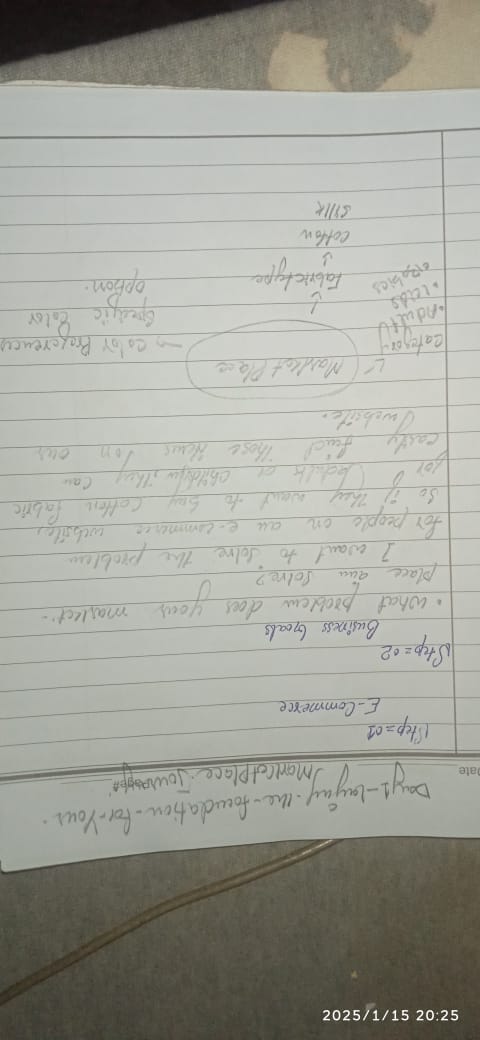 Day1-Laying-the-foundation-For-Your-
MarketPlace
Date
Step=01
E-Commerce
Step=02
Business Goals
• What problem does your market-
place aim solve?
I want to solve the problem
for people on an e-commerce website,
so if they want to buy cotton fabric
for (adults or children, they can
easily find those items on our
website.
Market Place
Category → Color Preferences
• Adult Specific Color
• kids option.
↓
Fabric type
↓
Cotton
Silk